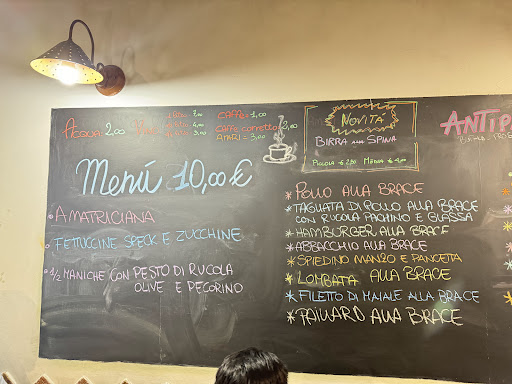 ACQUA 2,00
CAFFÈ = 1,00
CAFFÈ CORRETTO 2,00
AMARI = 3,00
NOVITA'
BIRRA ALLA SPINA
PICCOLA € 2,50 MEDIA €
ANTIP
Menú 10,00 €
AMATRICIANA
FETTUCCINE SPECK E ZUCCHINE
1/2 MANICHE CON PESTO DI RUCOLA
OLIVE E PECORINO
* POLLO ALLA BRACE
* TAGLIATA DI POLLO ALLA BRACE
CON RUCOLA PACHINO E GLASSA
* HAMBURGER ALLA BRACE
* ABBACCHIO ALLA BRACE
* SPIEDINO MANZO E PANCETTA
* LOMBATA ALLA BRACE
* FILETTO DI MAIALE ALLA BRACE
* PAILLARD ALLA BRACE